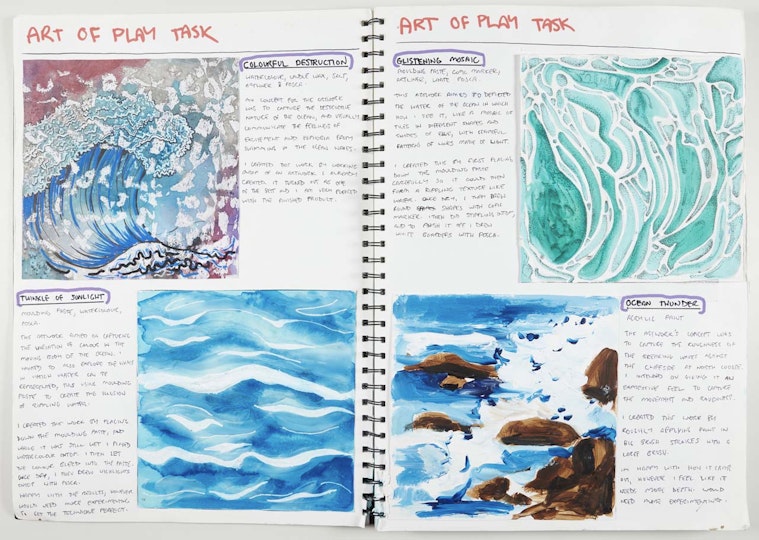 ART OF PLAY TASK
COLOURFUL DESTRUCTION
WATERCOLOUR, WAX, SALT,
ARTLINER & POSCA
MY CONCEPT FOR THIS ARTWORK
WAS TO CAPTURE THE DESTRUCTIVE
NATURE OF THE OCEAN, AND VISUALLY
COMMUNICATE THE FEELINGS OF
EXCITEMENT AND EUPHORIA FROM
SWIMMING IN THE OCEAN WAVES.
I CREATED THIS WORK BY WORKING
ON TOP OF AN ARTWORK I ALREADY
CREATED. IT TURNED OUT AS ONE
OF THE BEST AND I AM VERY PLEASED
WITH THE FINISHED PRODUCT.
TWINKLE OF SUNLIGHT
MOULDING PASTE, WATERCOLOUR,
POSCA
THIS ARTWORK AIMED ON CAPTURING
THE VARIATION OF COLOUR IN THE
MOVING BODY OF THE OCEAN. I
WANTED TO ALSO EXPLORE THE WAYS
IN WHICH WATER CAN BE
REPRESENTED, THUS USING MOULDING
PASTE TO CREATE THE ILLUSION
OF RIPPLING WATER.
I CREATED THIS WORK BY PLACING
DOWN THE MOULDING PASTE, AND
WHILE IT WAS STILL WET I PLACED
WATERCOLOUR ONTOP. I THEN LET
THE COLOUR BLEED INTO THE PASTE.
ONCE DRY, I THEN DREW HIGHLIGHTS
ONTOP WITH POSCA.
HAPPY WITH THE RESULTS, HOWEVER
WOULD NEED MORE EXPERIMENTING
TO GET THE TECHNIQUE PERFECT.
ART OF PLAY TASK
GLISTENING MOSAIC
MOULDING PASTE, COPIC MARKER,
ARTLINER, WHITE POSCA
THIS ARTWORK AIMED TO DEPICTED
THE WATER OF THE OCEAN IN WHICH
HOW I SEE IT, LIKE A MOSAIC OF
TILES IN DIFFERENT SHAPES AND
SHADES OF, WITH BEAUTIFUL
PATTERNS OF LINES MADE OF LIGHT.
I CREATED THIS BY FIRST PLACING
DOWN THE MOULDING PASTE
CAREFULLY SO IT COULD THEN
FORM A RIPPLING TEXTURE LIKE
WATER. ONCE DRY, I THEN DREW
ROUND SHAPES WITH COPIC
MARKER. I THEN DID STIPPLING ONTOP,
AND TO FINISH IT OFF I DREW
WHITE BORDERS WITH POSCA.
OCEAN THUNDER
ACRYLIC PAINT
THIS ARTWORK'S CONCEPT WAS
TO CAPTURE THE RUGGEDNESS OF
THE BREAKING WAVES AGAINST
THE CLIFFSIDE AT NORTH COOGEE.
I INTENDED ON GIVING IT AN
EXPRESSIVE FEEL TO CAPTURE
THE MOVEMENT AND ROUGHNESS.
I CREATED THIS WORK BY
ROUGHLY APPLYING PAINT IN
BIG BRUSH STROKES WITH A
LARGE BRUSH.
IM HAPPY WITH HOW IT CAME
OUT, HOWEVER I FEEL LIKE IT
NEEDS MORE DEPTH. WOULD
NEED MORE EXPERIMENTING.